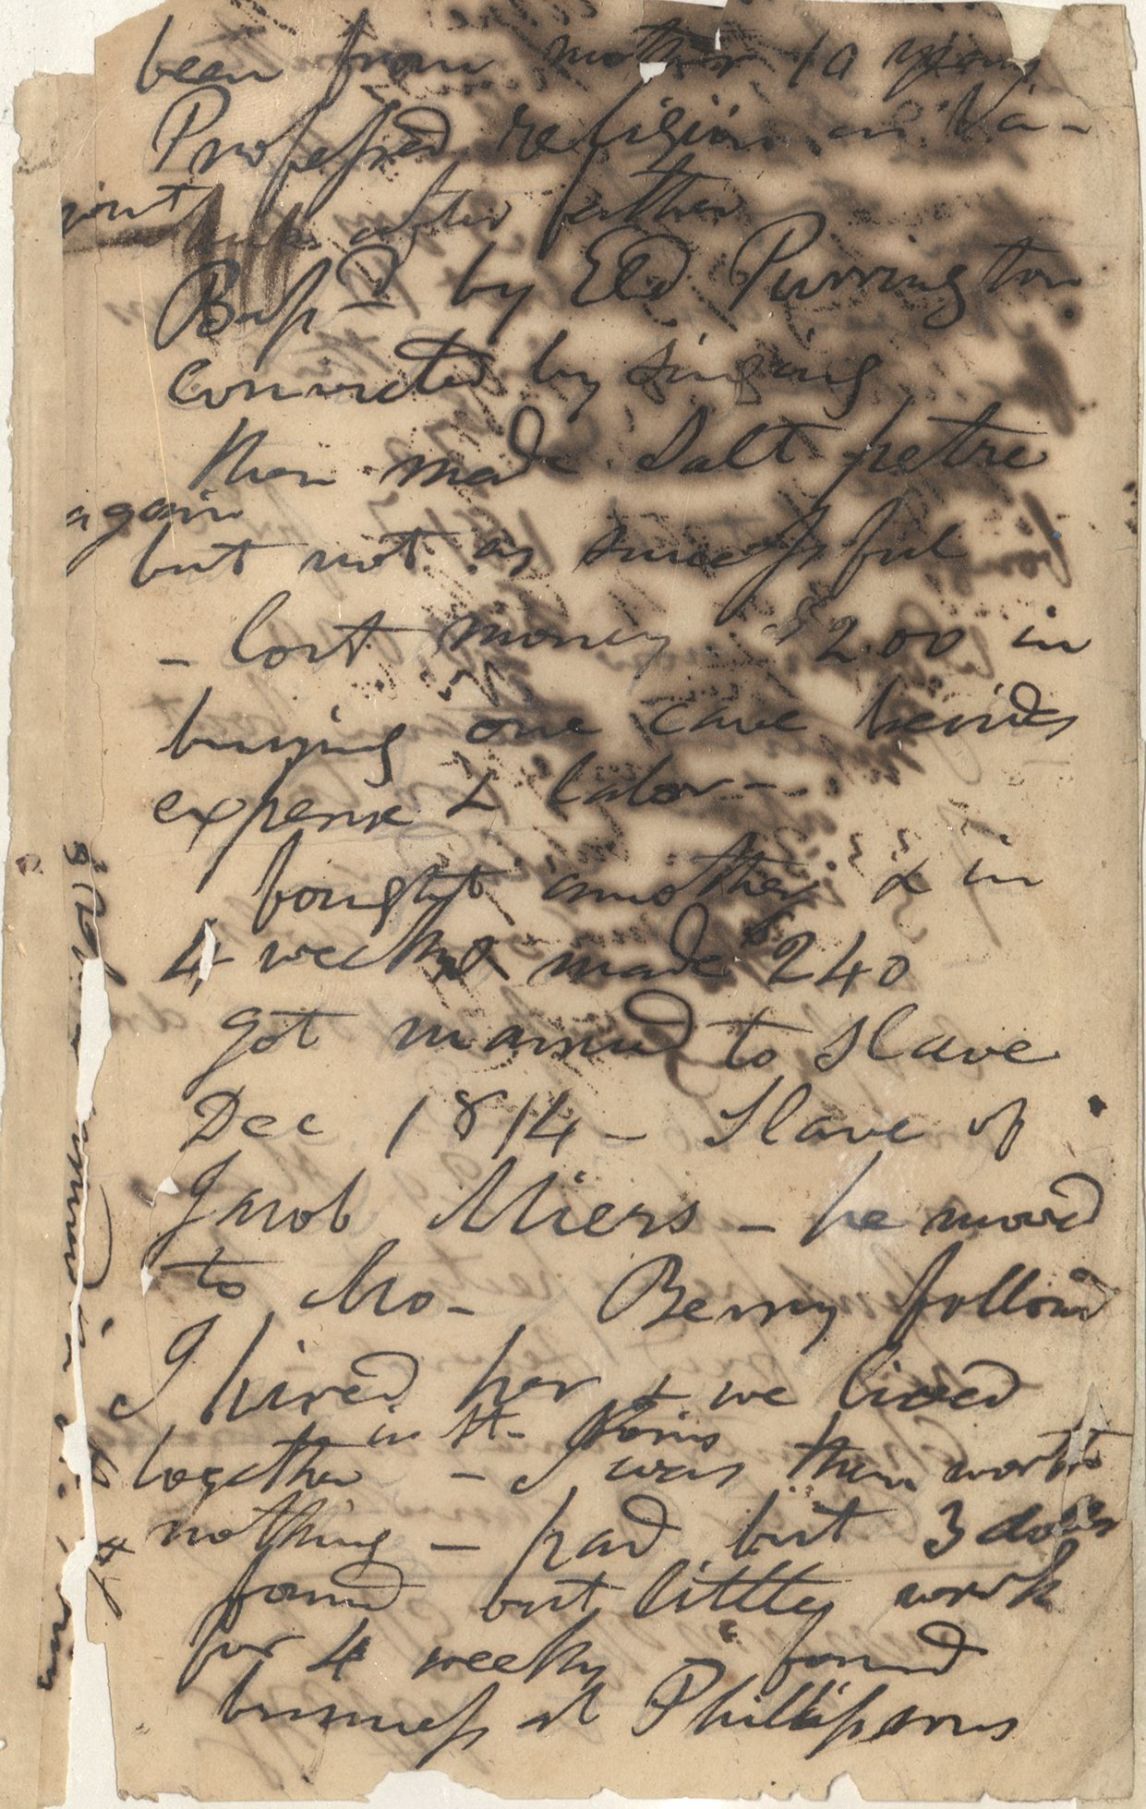 been from mother 10 years
Professed religion in Va -
just after father
Bap^d by Eld Purrington
convicted by singing
then made Salt petre
again
but not as successful
- lost money $200 in
buying one cave besides
expense & labor -
bought another & in
4 weeks made $240
got married to slave
Dec 1814 - Slave of
Jacob Miers - he moved
to Mo - Berry follow^d
I hired her & we lived
in St - Louis
together - I was then worth
nothing - had but 3 dolls
& found but little work
for 4 weeks found
business at Phillipsons